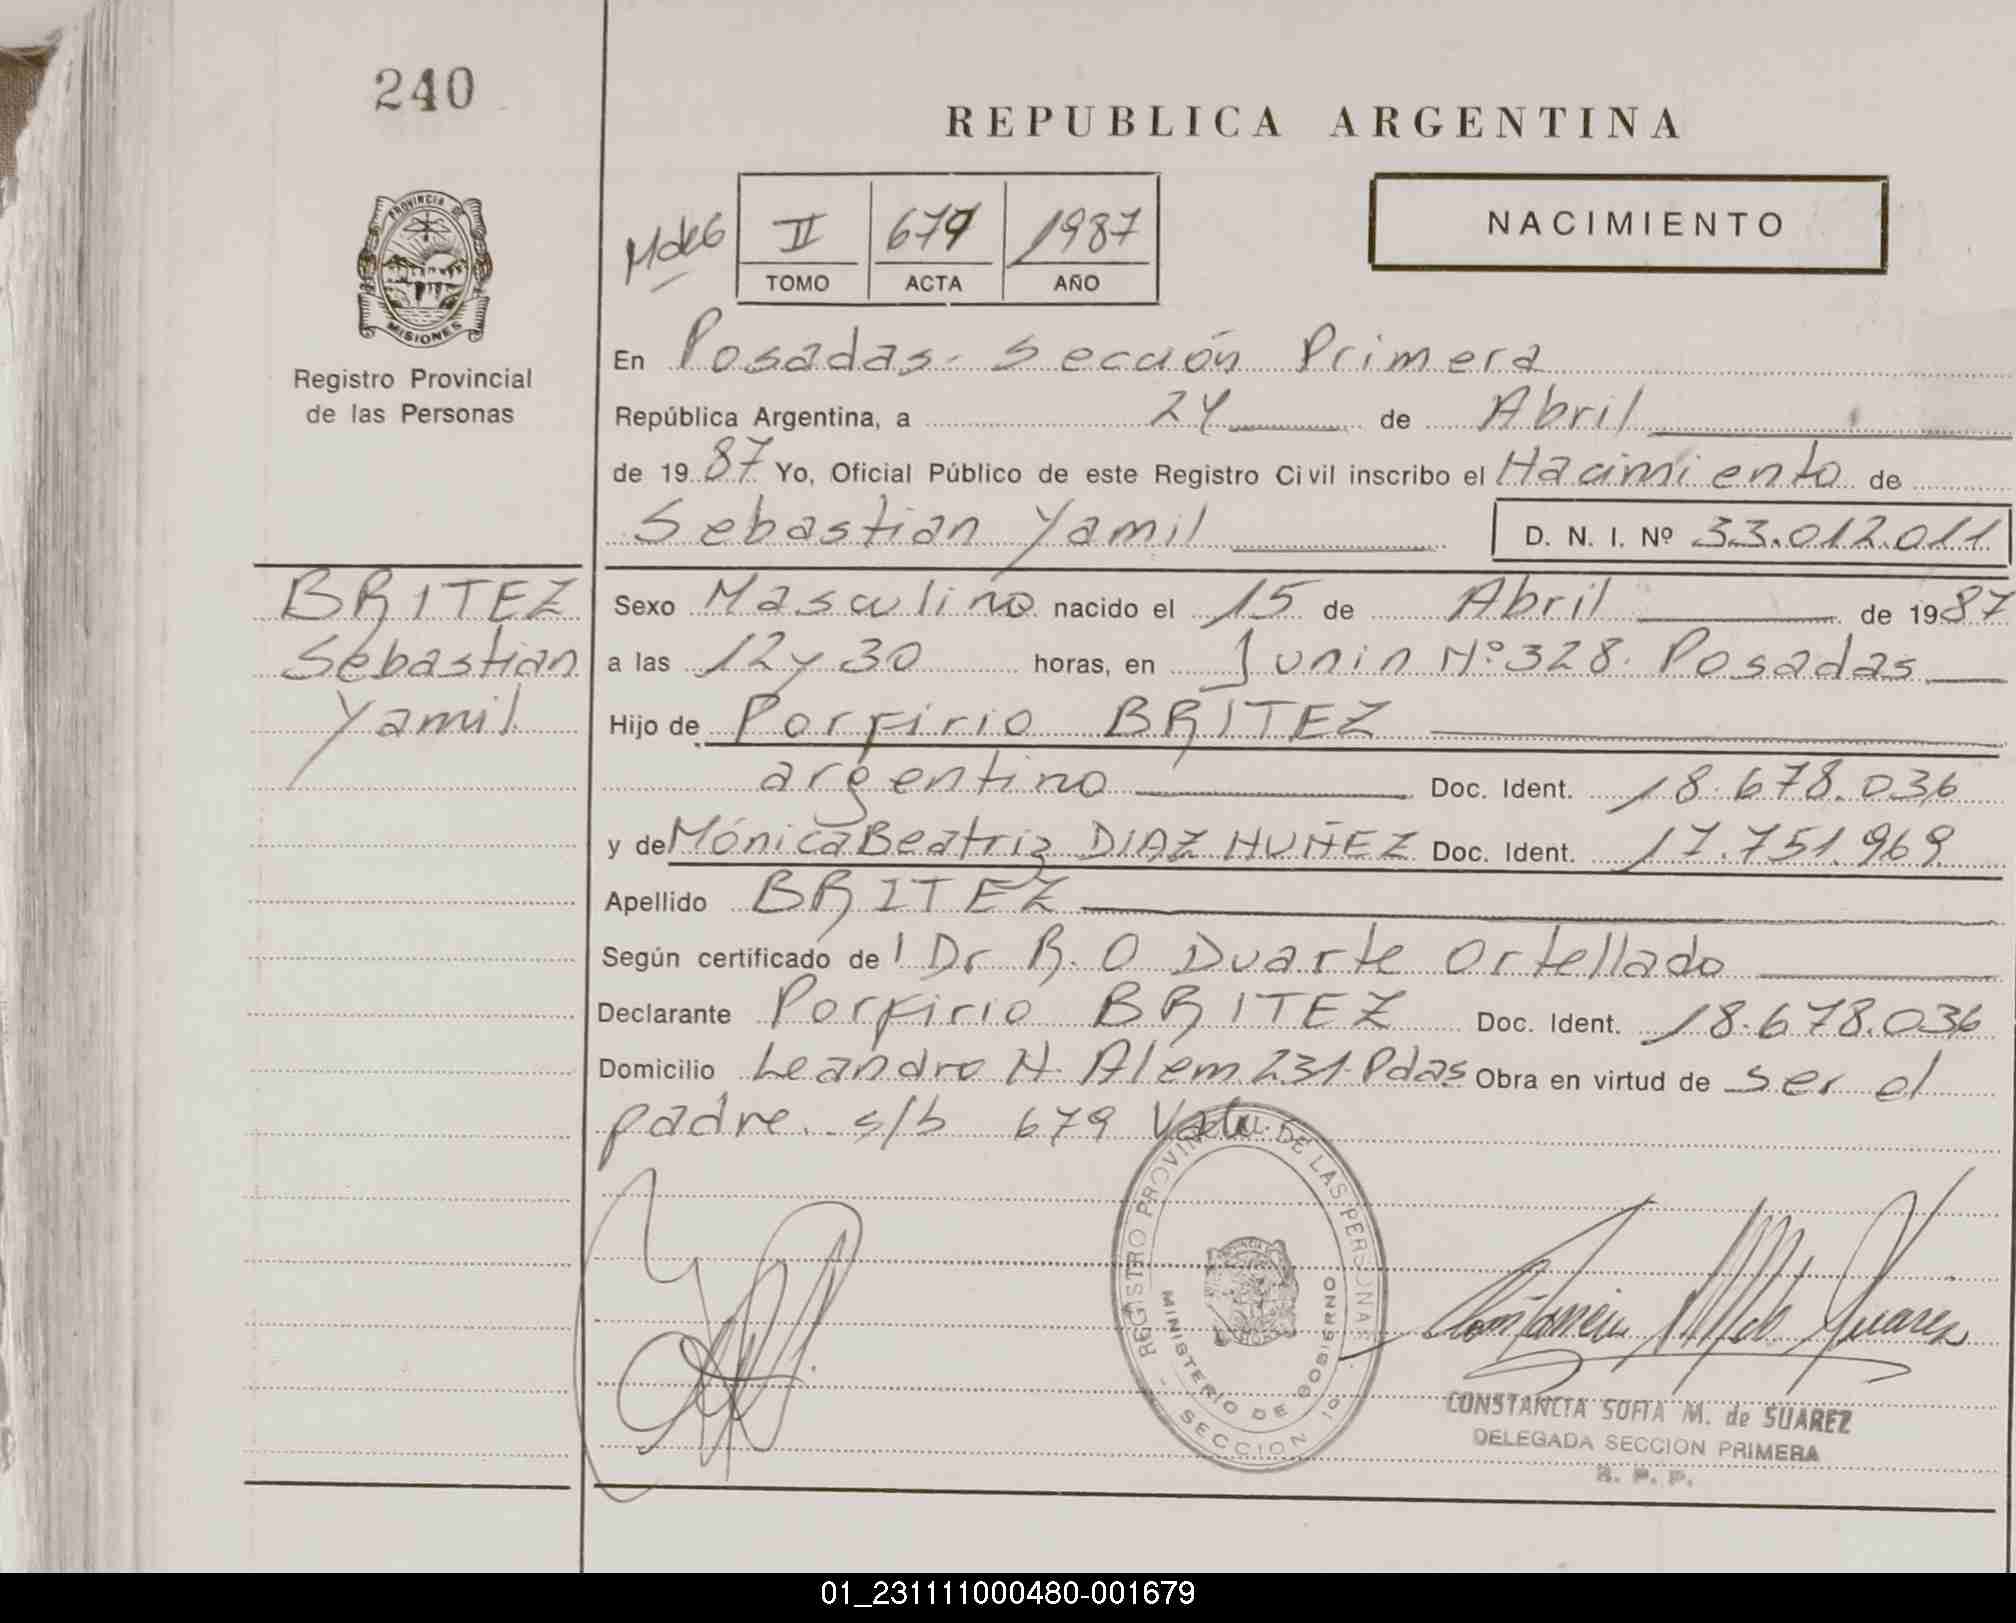 240
REPUBLICA ARGENTINA
PROVINCIA DE
MISIONES
Registro Provincial
de las Personas
NACIMIENTO
II 679 1987
TOMO ACTA AÑO
En Posadas- Sección Primera
República Argentina, a 24 de Abril
de 1987 Yo, Oficial Público de este Registro Civil inscribo el Nacimiento de
Sebastian Yamil D. N. I. Nº 33.012.011
BRITEZ
Sebastian
Yamil
Sexo Masculino nacido el 15 de Abril de 1987
a las 12 y 30 horas, en Junin Nº 328. Posadas
Hijo de Porfirio BRITEZ
argentino Doc. Ident. 18.678.036
y de Mónica Beatriz DIAZ NUÑEZ Doc. Ident. 17.751.969
Apellido BRITEZ
Según certificado del Dr R. O Duarte Ortellado
Declarante Porfirio BRITEZ Doc. Ident. 18.678.036
Domicilio Leandro N. Alem 231-Pdas Obra en virtud de ser el
padre. s/b 679 Vale
REGISTRO PROVINCIAL DE LAS PERSONAS
MINISTERIO DE GOBIERNO
SECCION 1a
CONSTANCIA SOFIA M. de SUAREZ
DELEGADA SECCION PRIMERA
R. P. P.
01_231111000480-001679